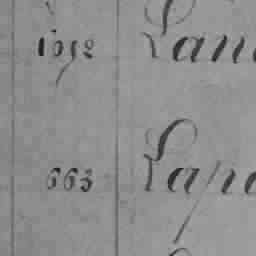 1092 Lan
663 Lapa